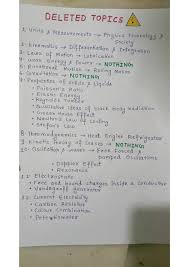 DELETED TOPICS
1. Units & Measurements → Physics Technology &
Society
2. Kinematics → Differentiation & Integration
3. Laws of Motion → Lubrication
4. Work Energy & Power → NOTHING!
5. Rotational Motion → Rolling Motion
6. Gravitation → NOTHING!
7. Properties of Solids & Liquids
• Poisson's Ratio
• Elastic Energy
• Reynolds Number
• Qualitative ideas of black body radiation
• Green House Effect
• Newton's Law of Cooling
8. Thermodynamics → Heat Engine Refrigerator
9. Kinetic Theory of Gases → NOTHING!
10. Oscillation & Waves → Free Forced &
Damped Oscillations
• Doppler Effect
• Resonance
11. Electrostatic
• Free and bound charges inside a conductor
• Vandegraff generator
12. Current Electricity
• Carbon Resistor
• Colour Combination
• Potentiometer